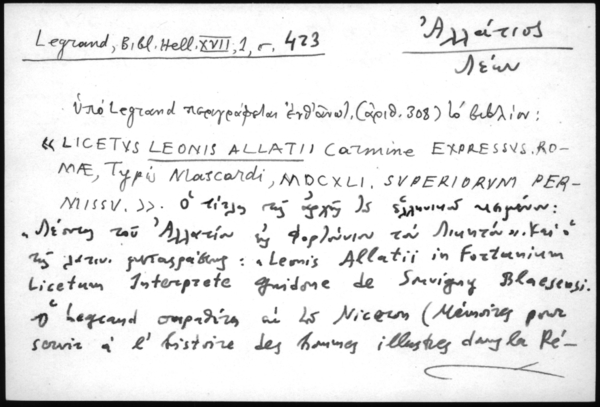 Legrand, Bibl. Hell. XVII, 1, σ. 423
Ἀλλάτιος
Λέων
ὑπὸ Legrand περιγράφεται ἐνθ' ἀνωτ. (ἀριθ. 308) τὸ βιβλίον:
« LICETVS LEONIS ALLATII Carmine EXPRESSVS. RO-
MÆ, Typis Mascardi, MDCXLI. SVPERIORVM PER-
MISSV. >>. Ὁ τίτλος τῆς ἀρχῆς τοῦ ἑλληνικοῦ κειμένου:
« Λέοντος τοῦ Ἀλλατίου εἰς Φορτούνιον τὸν Λικητόν ». Καὶ ὁ
τῆς λατιν. μεταφράσεως: « Leonis Allatii in Fortunium
Licetum Interprete Guidone de Souvigny Blaesensi.
Ὁ Legrand παραθέτει ἐκ τοῦ Niceron (Mémoires pour
servir à l'histoire des hommes illustres dans la Ré-